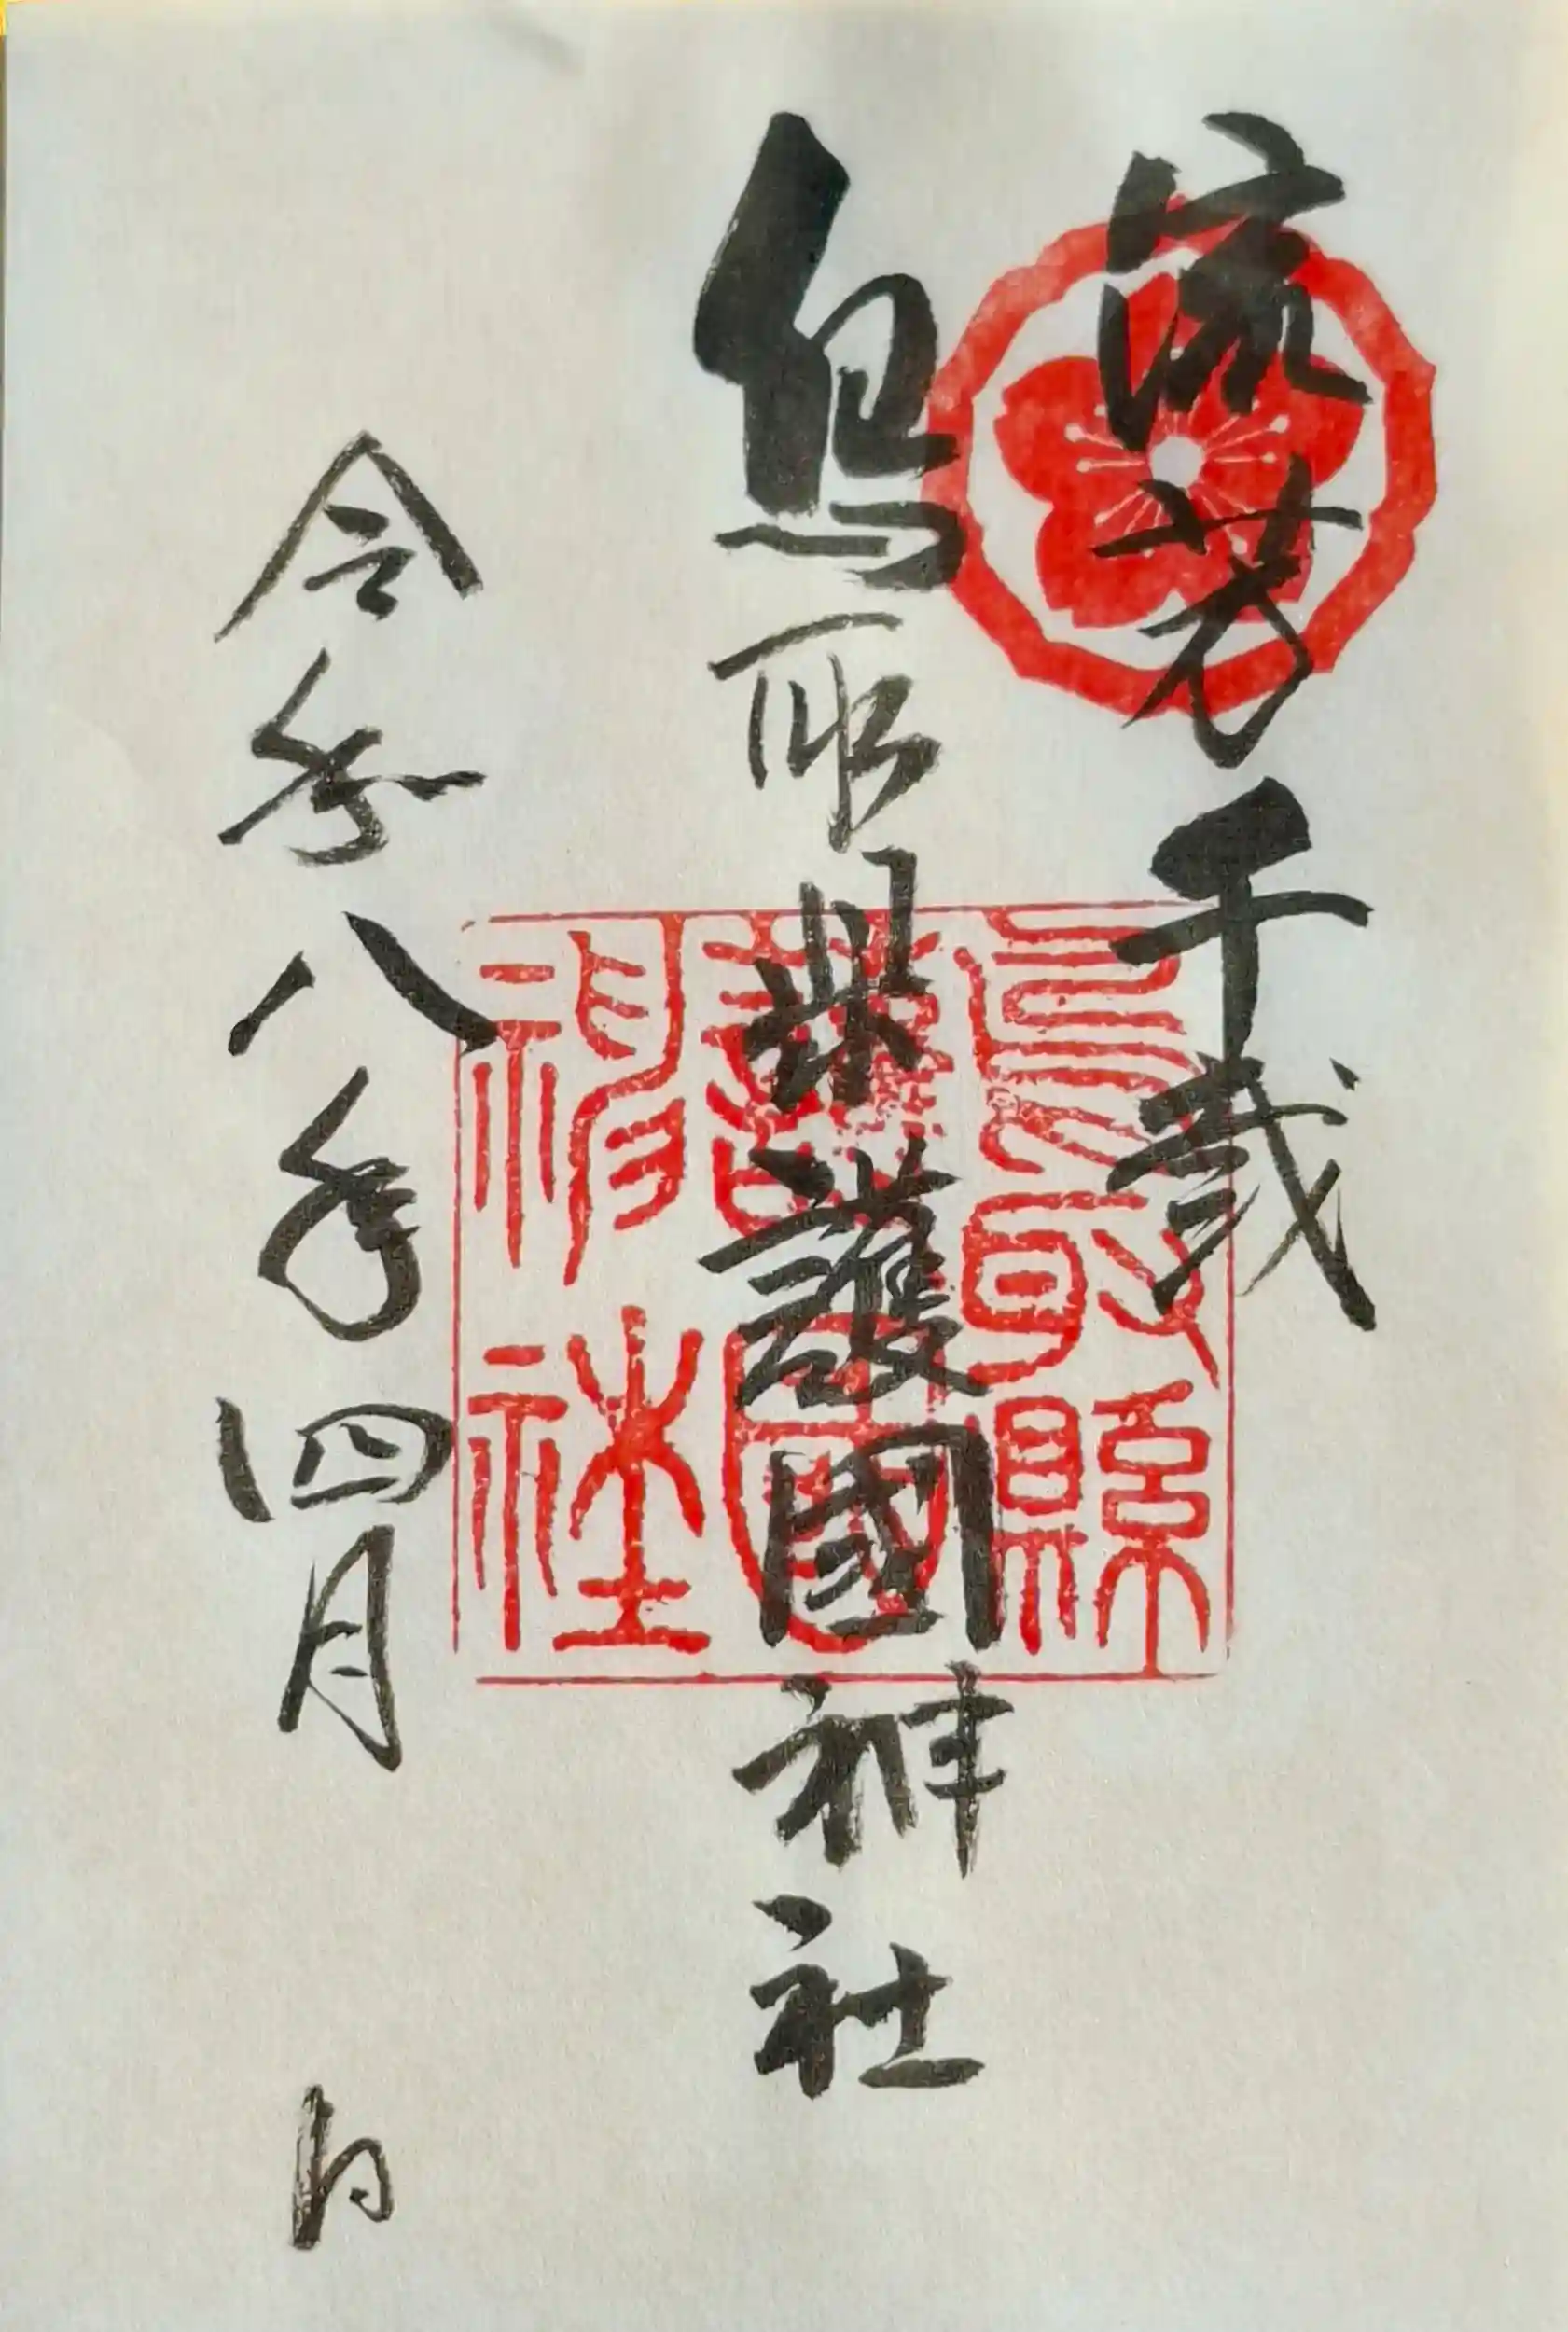 流芳千載
鳥取縣護國神社
令和八年四月 日
鳥取縣
護國
神社